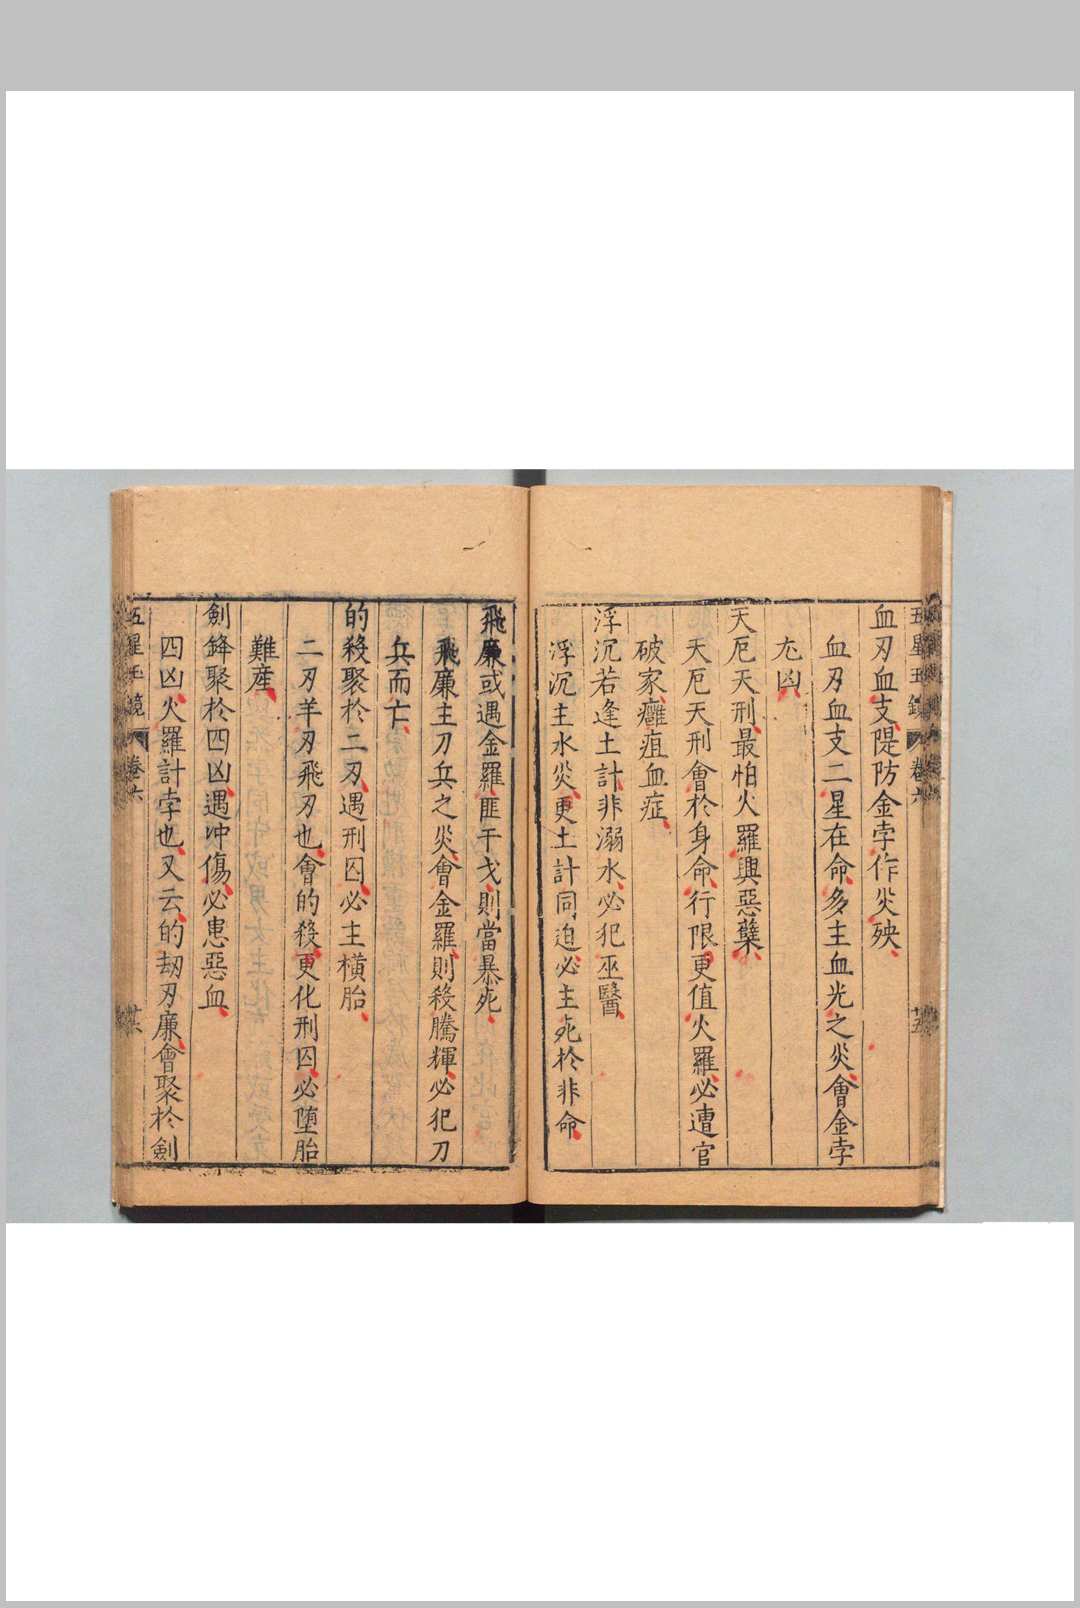 五星玉鏡 卷六 廿五
血刃血支隄防金孛作災殃
血刃血支二星在命多主血光之災會金孛
尤凶
天厄天刑最怕火羅興惡孽
天厄天刑會於身命行限更值火羅必遭官
破家癰疽血症
浮沉若逢土計非溺水必犯巫醫
浮沉主水災更土計同迫必主死於非命
飛廉或遇金羅匪干戈則當暴死
飛廉主刀兵之災會金羅則殺騰輝必犯刀
兵而亡
的殺聚於二刃遇刑囚必主橫胎
二刃羊刃飛刃也會的殺更化刑囚必堕胎
難産
劍鋒聚於四凶遇冲傷必患惡血
四凶火羅計孛也又云的刼刃廉會聚於劍
五星玉鏡 卷六 廿六